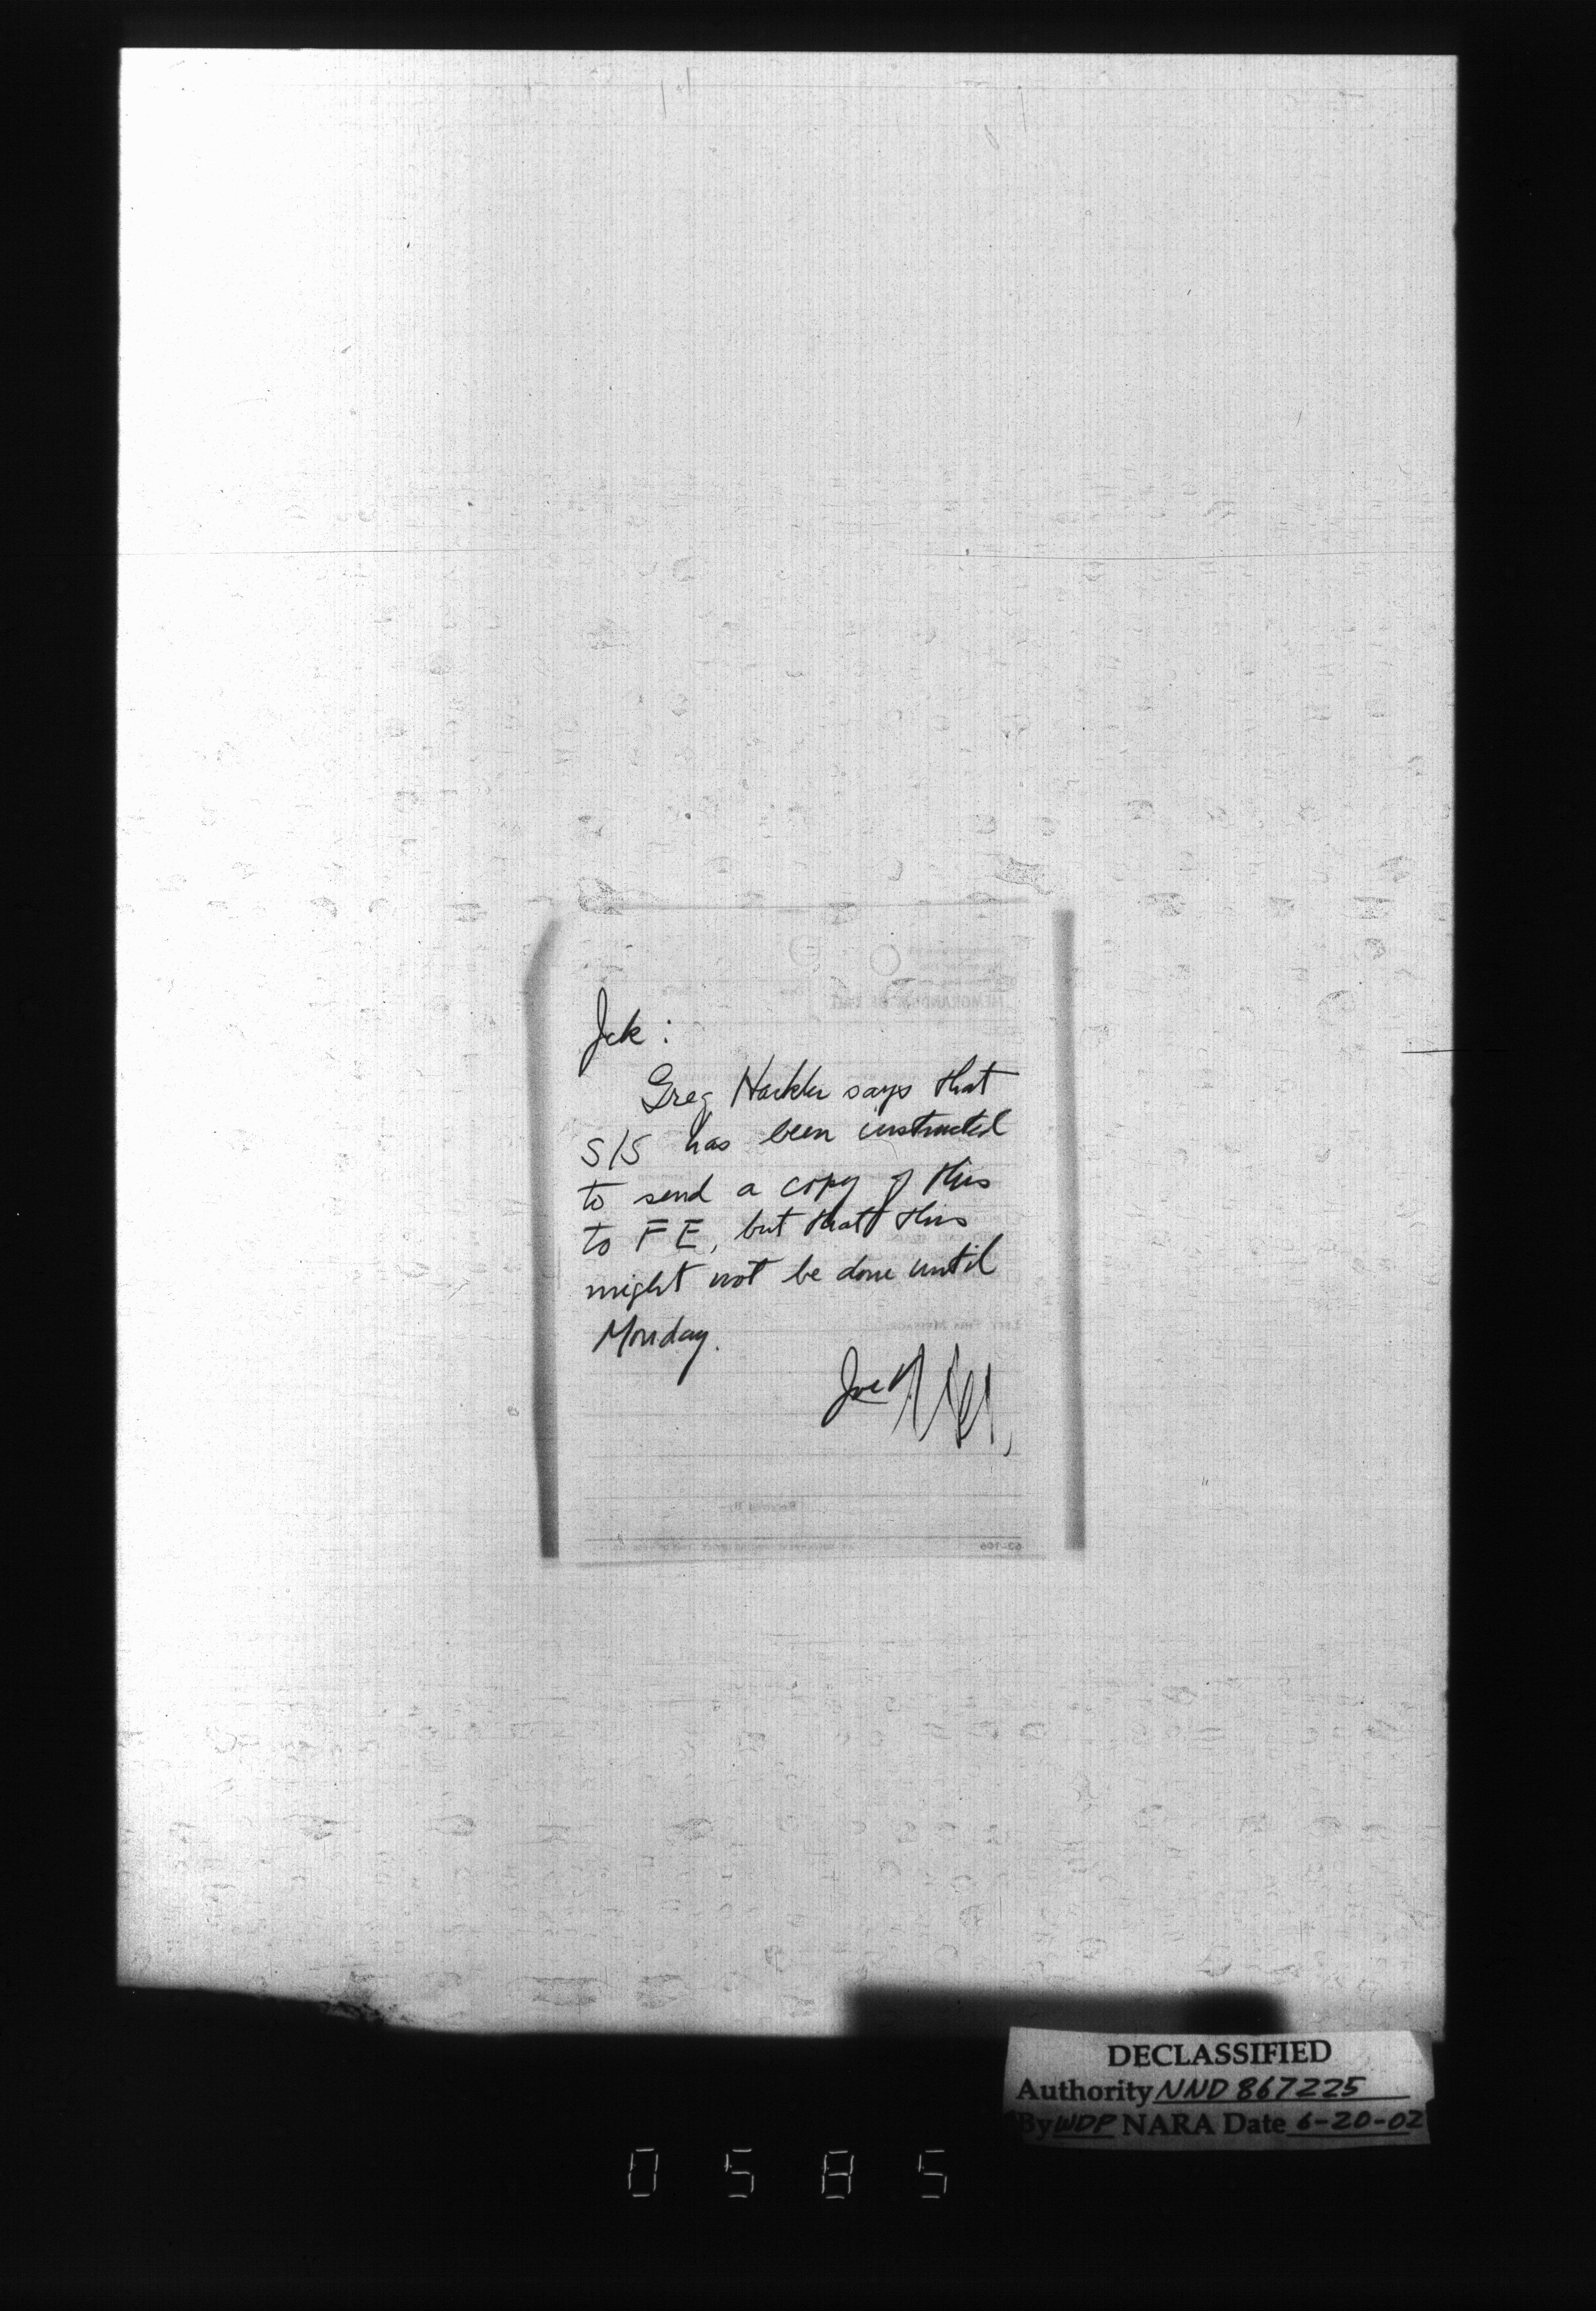 Jck:
Greg says that
S/S has been instructed
to send a copy of this
to FE, but that this
might not be done until
Monday.
Joe
DECLASSIFIED
Authority NND 867225
By WDP NARA Date 6-20-02
0585